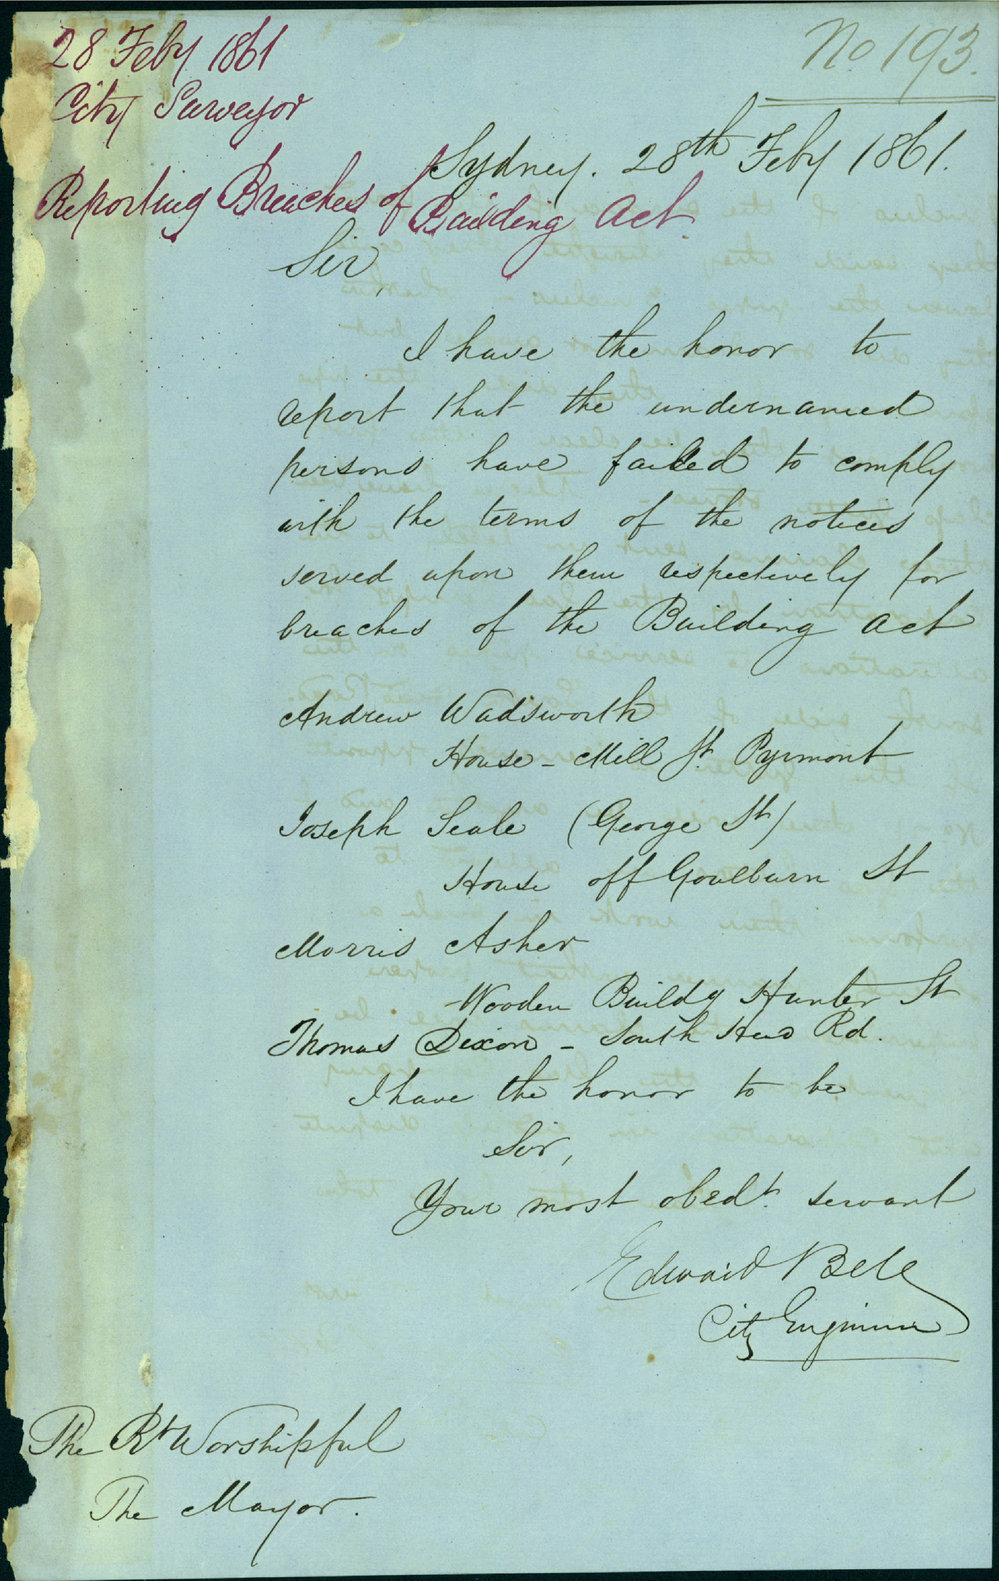 28 Feby 1861
City Surveyor
Reporting Breaches of
Building Act.
No 193.
Sydney. 28th Feby 1861.
Sir,
I have the honor to
report that the undernamed
persons have failed to comply
with the terms of the notices
served upon them respectively for
breaches of the Building Act
Andrew Wadsworth
House - Mill St. Pyrmont
Joseph Seale (George St)
House off Goulburn St
Morris Asher
Wooden Buildg Hunter St
Thomas Dixon - South Head Rd.
I have the honor to be
Sir,
Your most obedt. servant
Edward Bell
City Engineer
The Rt Worshipful
The Mayor.